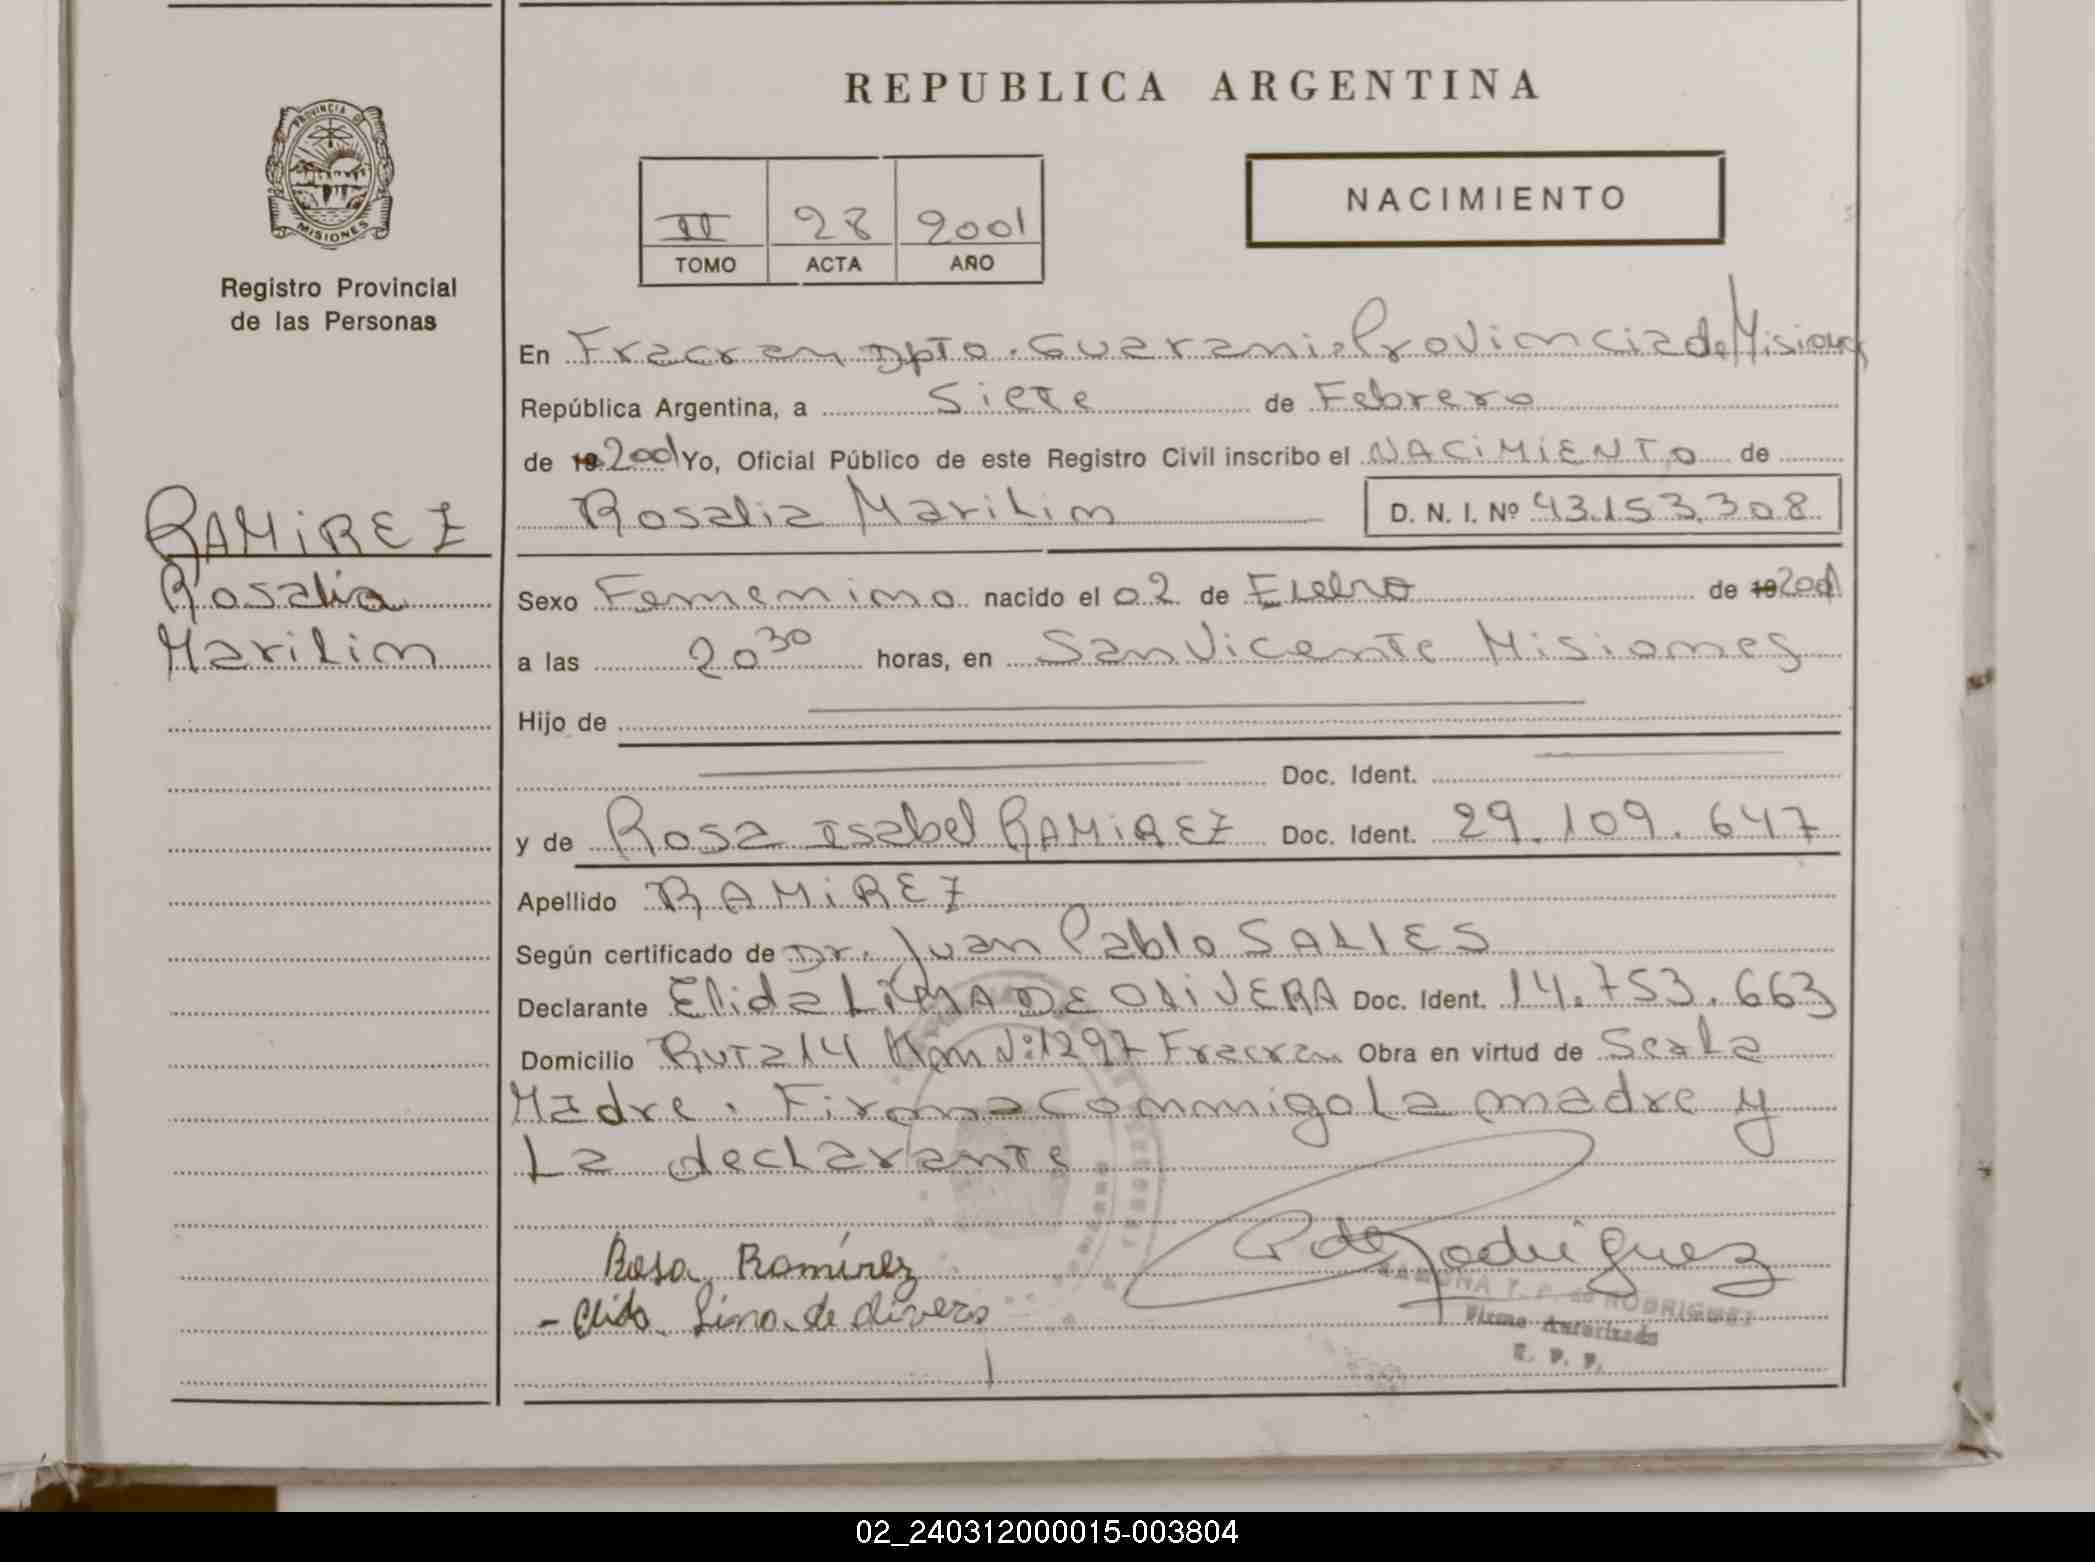 REPUBLICA ARGENTINA
PROVINCIA DE
MISIONES
Registro Provincial
de las Personas
II 28 2001
TOMO ACTA AÑO
NACIMIENTO
RAMIREZ
Rosalia
Marilin
En Fracran Dpto. Guarani Provincia de Misiones
República Argentina, a Siete de Febrero
de 19 2001 Yo, Oficial Público de este Registro Civil inscribo el NACIMIENTO de
Rosalia Marilin D. N. I. Nº 43.153.308
Sexo Femenino nacido el 02 de Enero de 19 2001
a las 20 30 horas, en San Vicente Misiones
Hijo de
Doc. Ident.
y de Rosa Isabel RAMIREZ Doc. Ident. 29.109.647
Apellido RAMIREZ
Según certificado de Dr. Juan Pablo SALLES
Declarante Elida LIMA DE OLIVERA Doc. Ident. 14.753.663
Domicilio Ruta 14 Km Nº 1297 Fracran Obra en virtud de Ser La
Madre. Firma Conmigo La madre y
La declarante
Rosa Ramírez
- Elida Lima de Olivera
RAMONA T. F. de RODRIGUEZ
Firma Autorizada
R. P. P.
02_240312000015-003804